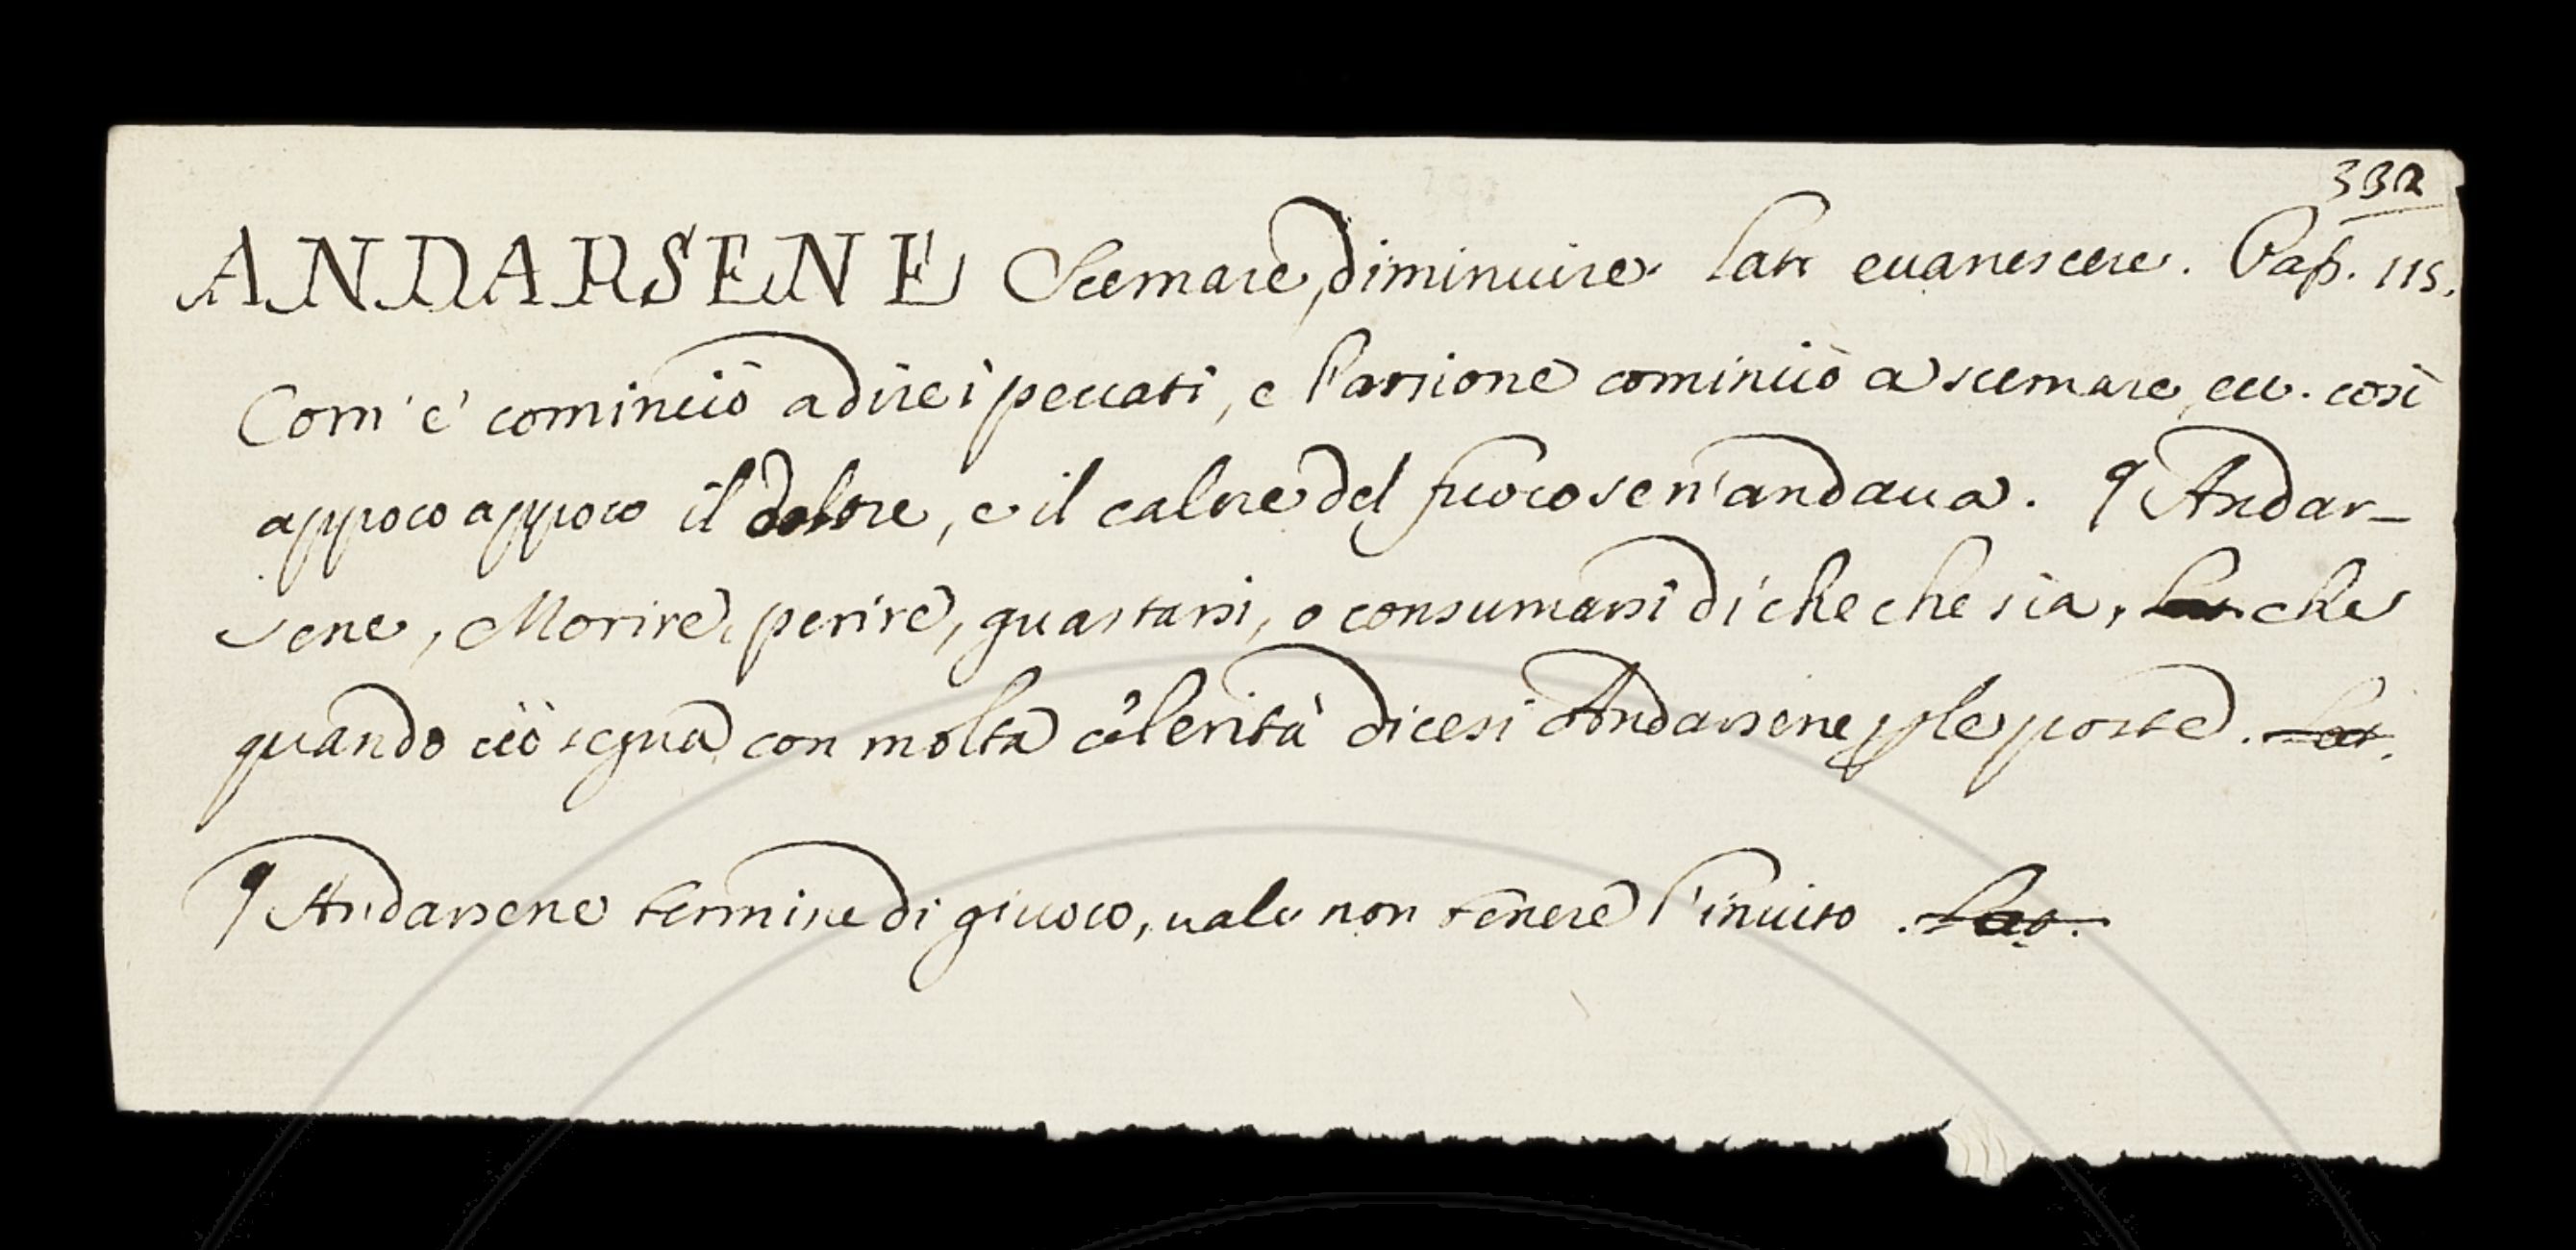 332
ANDARSENE Scemare, diminuire. lat. euanescere. Pass. 115.
Com' e' cominciò a dire i peccati, e l'arsione cominciò a scemare, ecc. così
appoco appoco il dolore, e il calore del fuoco sen'andaua. ¶ Andar-
sene, Morire, perire, guastarsi, o consumarsi di che che sia, lat. che
quando ciò segua con molta celerità dicesi Andarsene p le poste. lat.
¶ Andarsene termine di giuoco, uale non tenere l'inuito. lat.